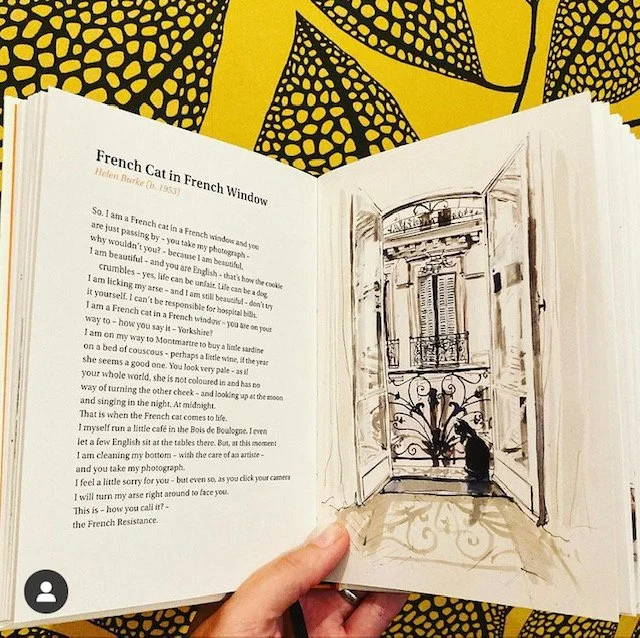 French Cat in French Window
Helen Burke (b. 1953)
So, I am a French cat in a French window and you
are just passing by – you take my photograph –
why wouldn't you? – because I am beautiful.
I am beautiful – and you are English – that's how the cookie
crumbles – yes, life can be unfair. Life can be a dog.
I am licking my arse – and I am still beautiful – don't try
it yourself. I can't be responsible for hospital bills.
I am a French cat in a French window – you are on your
way to – how you say it – Yorkshire?
I am on my way to Montmartre to buy a little sardine
on a bed of couscous – perhaps a little wine, if the year
she seems a good one. You look very pale – as if
your whole world, she is not coloured in and has no
way of turning the other cheek – and looking up at the moon
and singing in the night. At midnight.
That is when the French cat comes to life.
I myself run a little café in the Bois de Boulogne. I even
let a few English sit at the tables there. But, at this moment
I am cleaning my bottom – with the care of an artiste –
and you take my photograph.
I feel a little sorry for you – but even so, as you click your camera
I will turn my arse right around to face you.
This is – how you call it? –
the French Resistance.